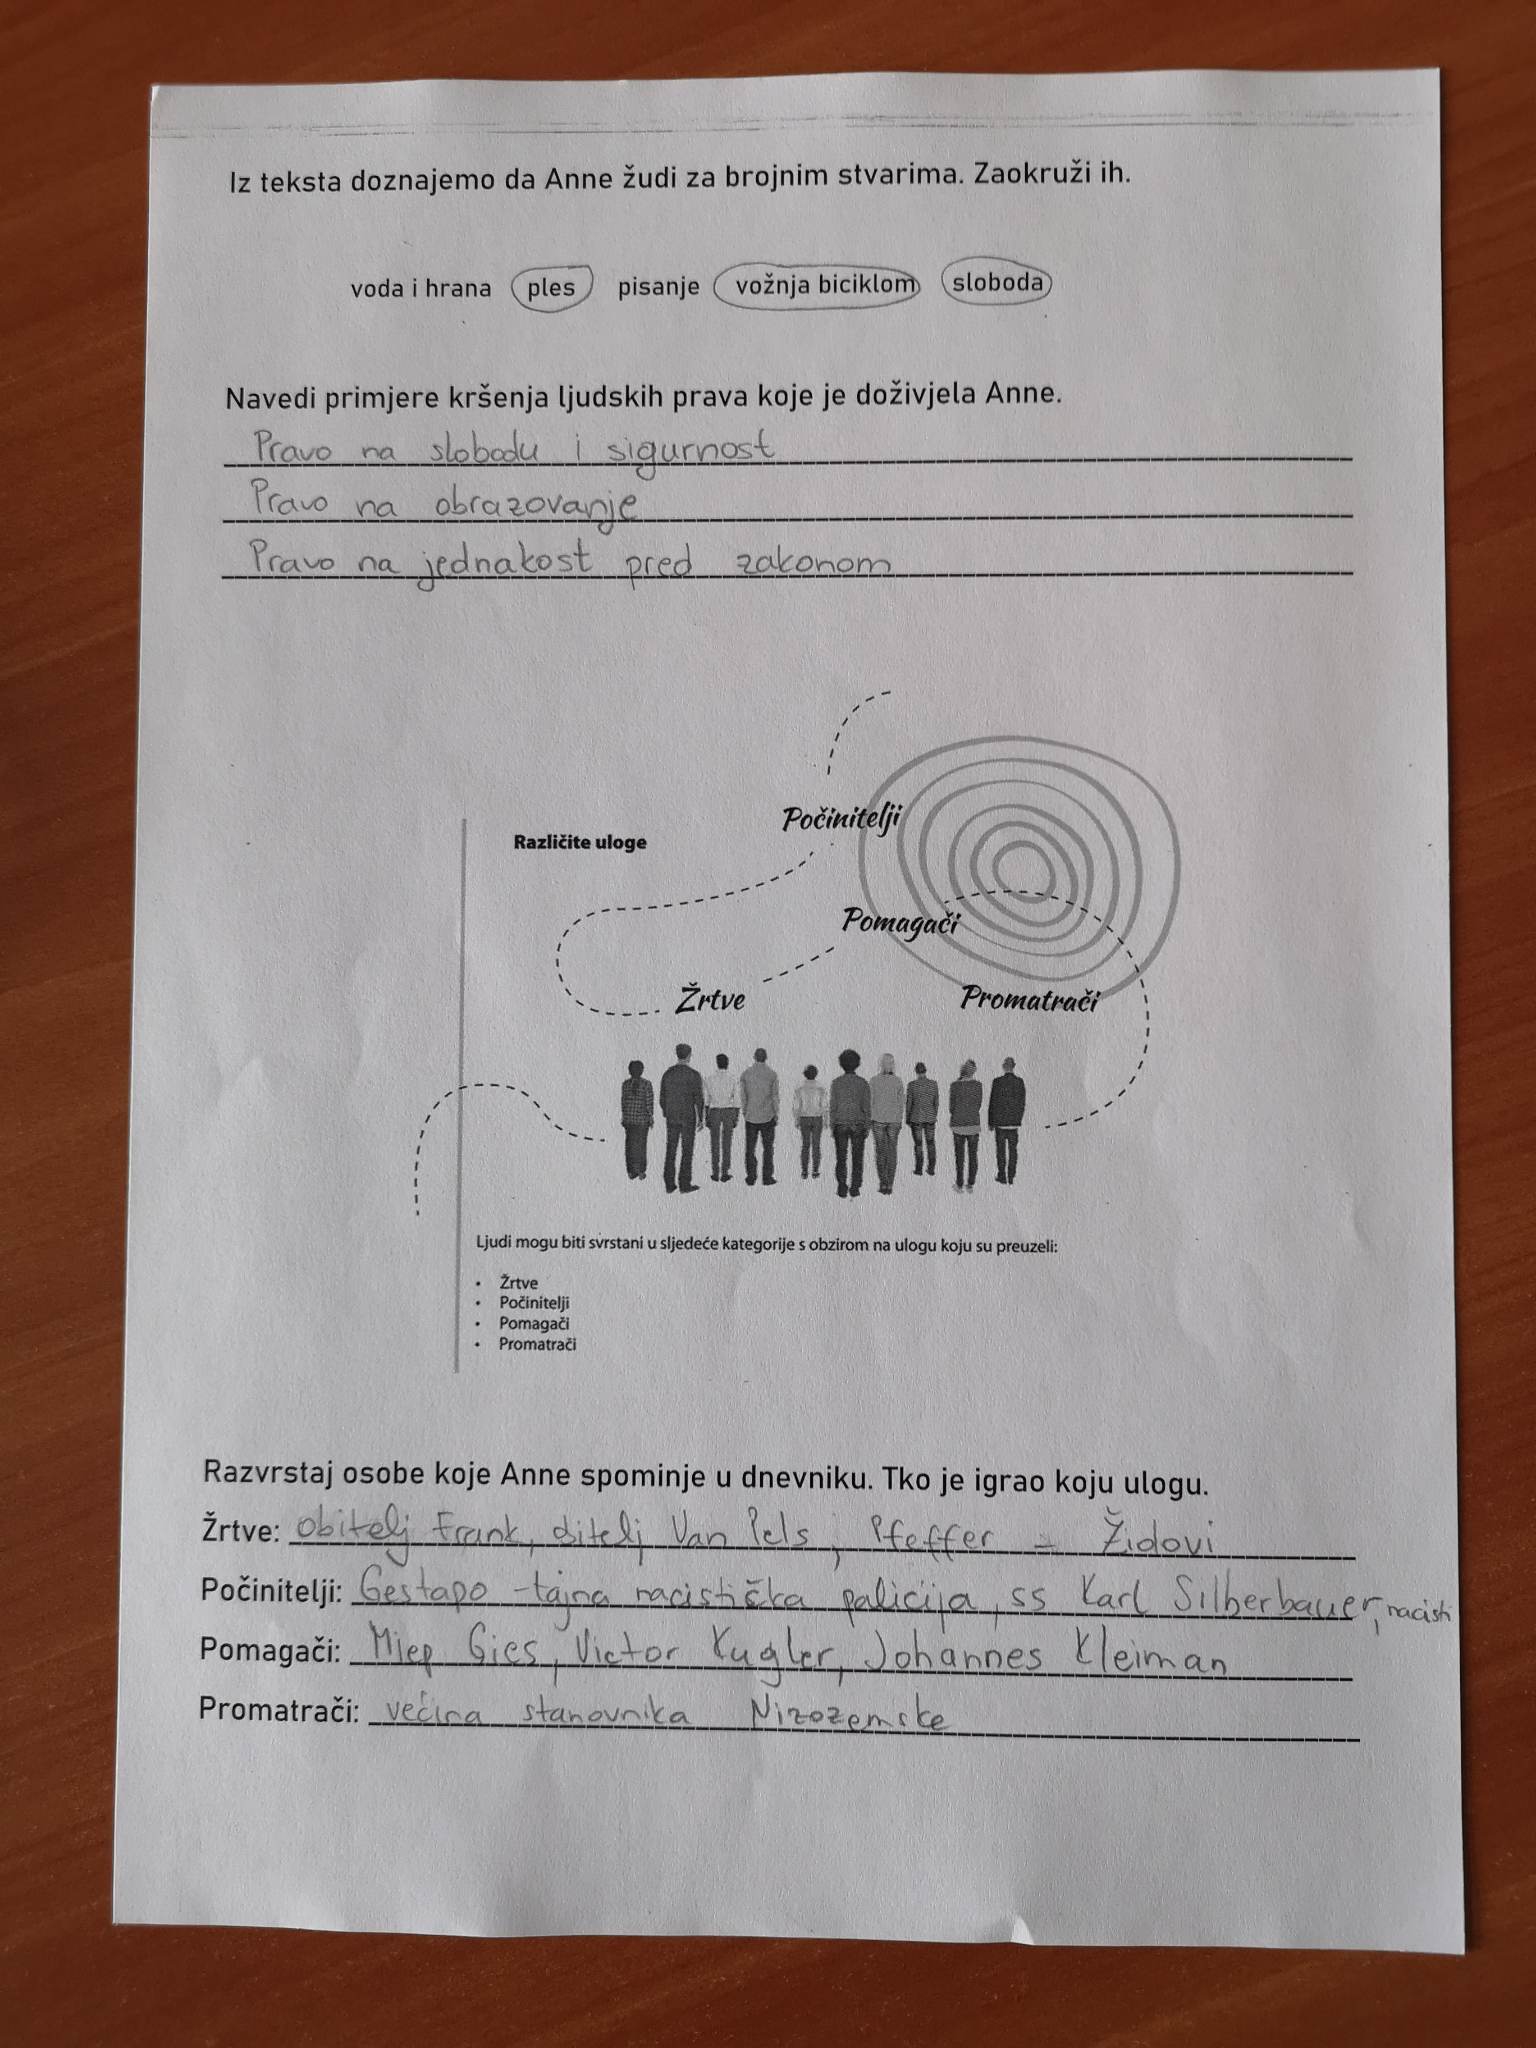 Iz teksta doznajemo da Anne žudi za brojnim stvarima. Zaokruži ih.
voda i hrana ples pisanje vožnja biciklom sloboda
Navedi primjere kršenja ljudskih prava koje je doživjela Anne.
Pravo na slobodu i sigurnost
Pravo na obrazovanje
Pravo na jednakost pred zakonom
Počinitelji
Različite uloge
Pomagači
Žrtve
Promatrači
Ljudi mogu biti svrstani u sljedeće kategorije s obzirom na ulogu koju su preuzeli:
• Žrtve
• Počinitelji
• Pomagači
• Promatrači
Razvrstaj osobe koje Anne spominje u dnevniku. Tko je igrao koju ulogu.
Žrtve: Obitelj Frank, obitelj Van Pels, Pfeffer - Židovi
Počinitelji: Gestapo - tajna nacistička policija, SS Karl Silberbauer, nacisti
Pomagači: Miep Gies, Victor Kugler, Johannes Kleiman
Promatrači: većina stanovnika Nizozemske